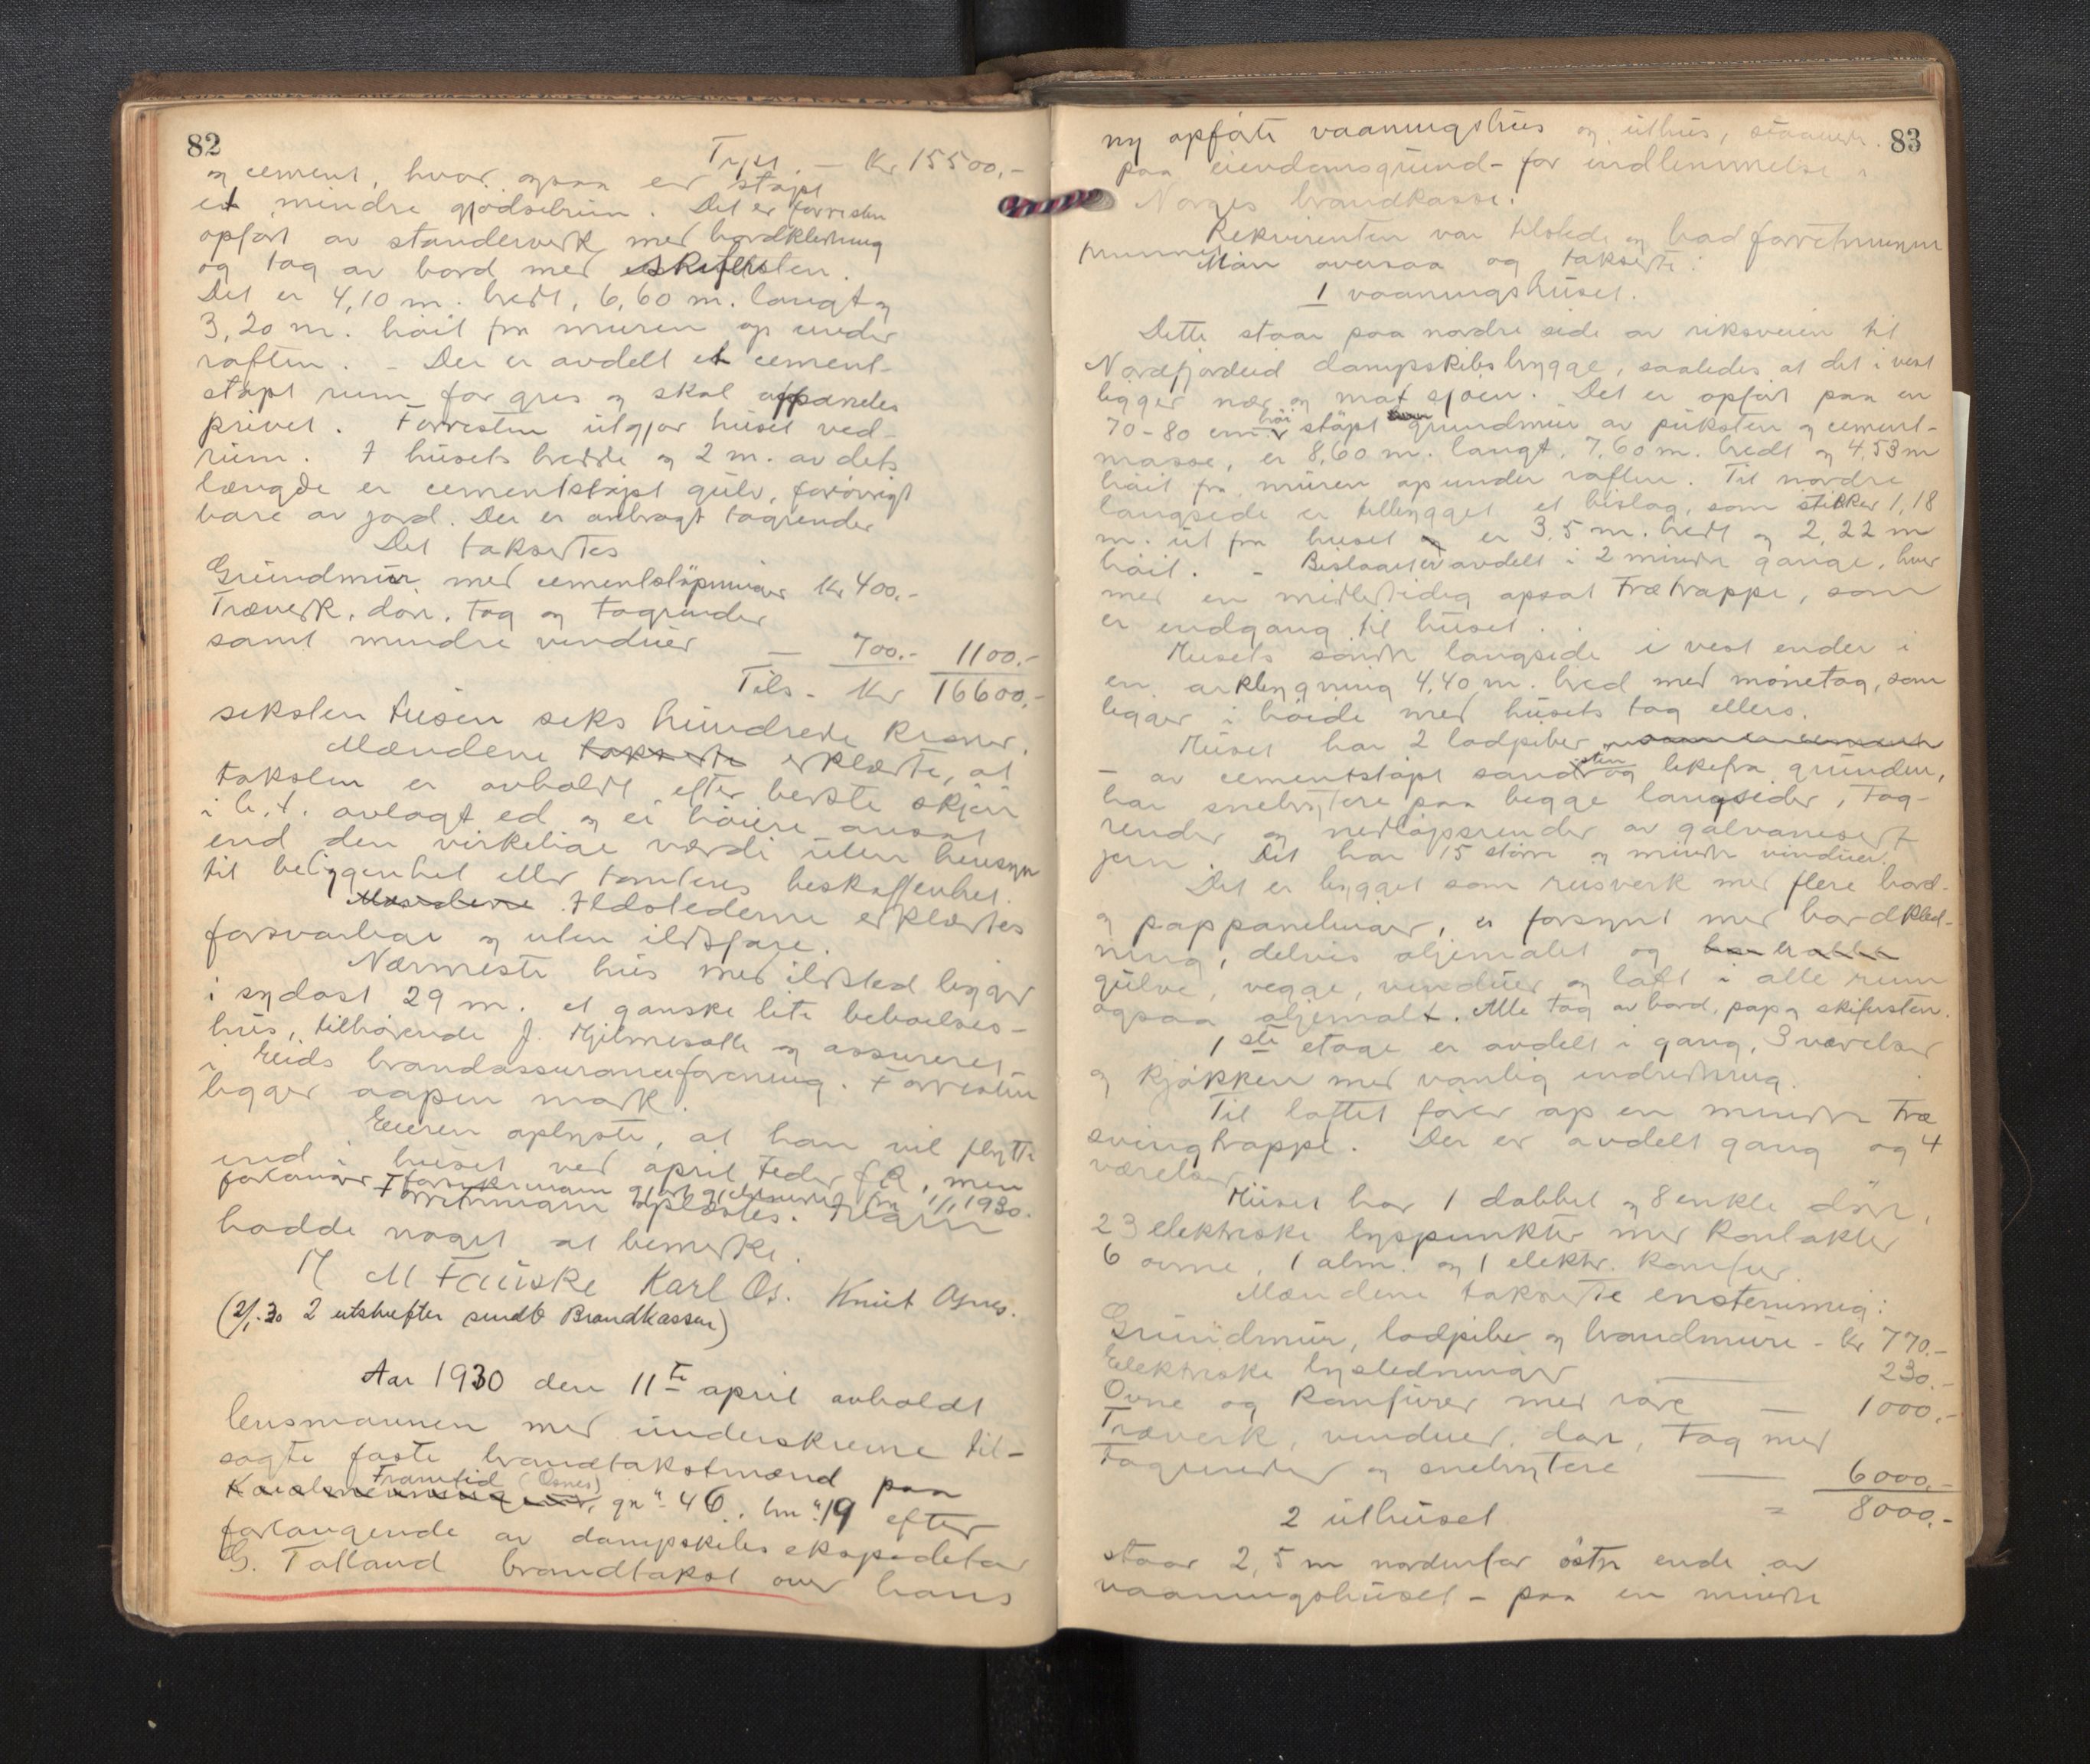 82
Trpt. — Kr 15500,-
og cement, hvor ogsaa er støpt
et mindre gjødselrum. Det er forresten
opført av standerverk med bordklædning
og tag av bord med skifersten.
Det er 4,10 m. bredt, 6,60 m. langt og
3,20 m. høit fra muren op under
raften. - Der er avdelt et cement-
støpt rum for gris og skal oppandeles
privet. Forresten utgjør huset ved-
rum. I husets bredde og 2 m. av dets
længde er cementstøpt gulv, forøvrigt
bare av jord. Der er anbragt tagrender
Det taksertes
Grundmur med cementstøpninger Kr 400.-
Træverk, dør, tag og tagrender
samt mindre vinduer — 700.- 1100.-
Tils - Kr 16600,-
seksten tusen seks hundrede kroner.
Mændene takserte erklærte, at
taksten er avholdt efter bedste skjøn
i h. t. avlagt ed og ei høiere ansat
end den virkelige værdi uten hensyn
til beliggenhet eller tomtens beskaffenhet.
Mændene Ildstederne erklærtes
forsvarlige og uten ildsfare.
Nærmeste hus med ildsted ligger
i sydost 29 m. et ganske lite beboelses-
hus, tilhørende J. Hjelmesæth og assureret
i Eids brandassuranceforening. Forresten
ligger aapen mark.
Eieren oplyste, at han vil flytte
ind i huset ved april tider f. k., men
forlanger forsikringen gjort gjeldende fra 1/1 1930.
Forretningen oplæstes. Ingen
hadde noget at bemerke.
M Fauske Karl Os. Knut Osnes.
(2/1.30 2 utskrifter sendt Brandkassen)
Aar 1930 den 11te april avholdt
lensmannen med underskrevne til-
sagte faste brandtakstmænd paa
Framtid (Osnes)
gn" 46, bn" 19 efter
forlangende av dampskibsekspeditør
G. Tafland brandtakst over hans
83
ny opførte vaaningshus og uthus, staaende
paa eiendomsgrund - for indlemmelse i
Norges brandkasse.
Rekvirenten var tilstede og bad forretningen
fremmet. Man oversaa og takserte:
1 vaaningshuset.
Dette staar paa nordre side av riksveien til
Nordfjordeid dampskibsbrygge, saaledes at det i vest
ligger nær og mot sjøen. Det er opført paa en
70-80 cm. høi støpt grundmur av puksten og cement-
masse, er 8,60 m. langt, 7,60 m. bredt og 4,53 m
høit fra muren op under raften. Til nordre
langside er tilbygget et bislag, som stikker 1,18
m. ut fra huset er 3,5 m. bredt og 2,22 m
høit. - Bislaget er avdelt i 2 mindre gange, hver
med en midlertidig opsat trætrappe, som
er indgang til huset.
Husets søndre langside i vest ender i
en arkbygning 4,40 m. bred med mønetag, som
ligger i høide med husets tag ellers.
Huset har 2 ladpiber
- av cementstøpt sandsten og like fra grunden,
har snebrytere paa begge langsider, tag-
render og nedløpsrender av galvanisert
jern. Det har 15 større og mindre vinduer.
Det er bygget som reisverk med flere bord-
og pappanelinger, er forsynt med bordklæd-
ning, delvis oljemalet og
gulve, vegge, vinduer og loft i alle rum
ogsaa oljemalt. Alle tag av bord, pap og skifersten.
1ste etage er avdelt i gang, 3 værelser
og kjøkken med vanlig indredning.
Til loftet fører op en mindre træ
svingtrappe. Der er avdelt gang og 4
værelser
Huset har 1 dobbel og 8 enkle dører,
23 elektriske lyspunkter med kontakter
6 ovne, 1 alm. og 1 elektr. komfur.
Mændene takserte enstemmig:
Grundmur, ladpiber og brandmure - kr 770.-
Elektriske lysledninger — 230.-
Ovne og komfurer med rør — 1000.-
Træverk, vinduer, dør, tag med
tagrender og snebrytere — 6000.-
= 8000.-
2 uthuset
staar 2,5 m nordenfor østre ende av
vaaningshuset - paa en mindre